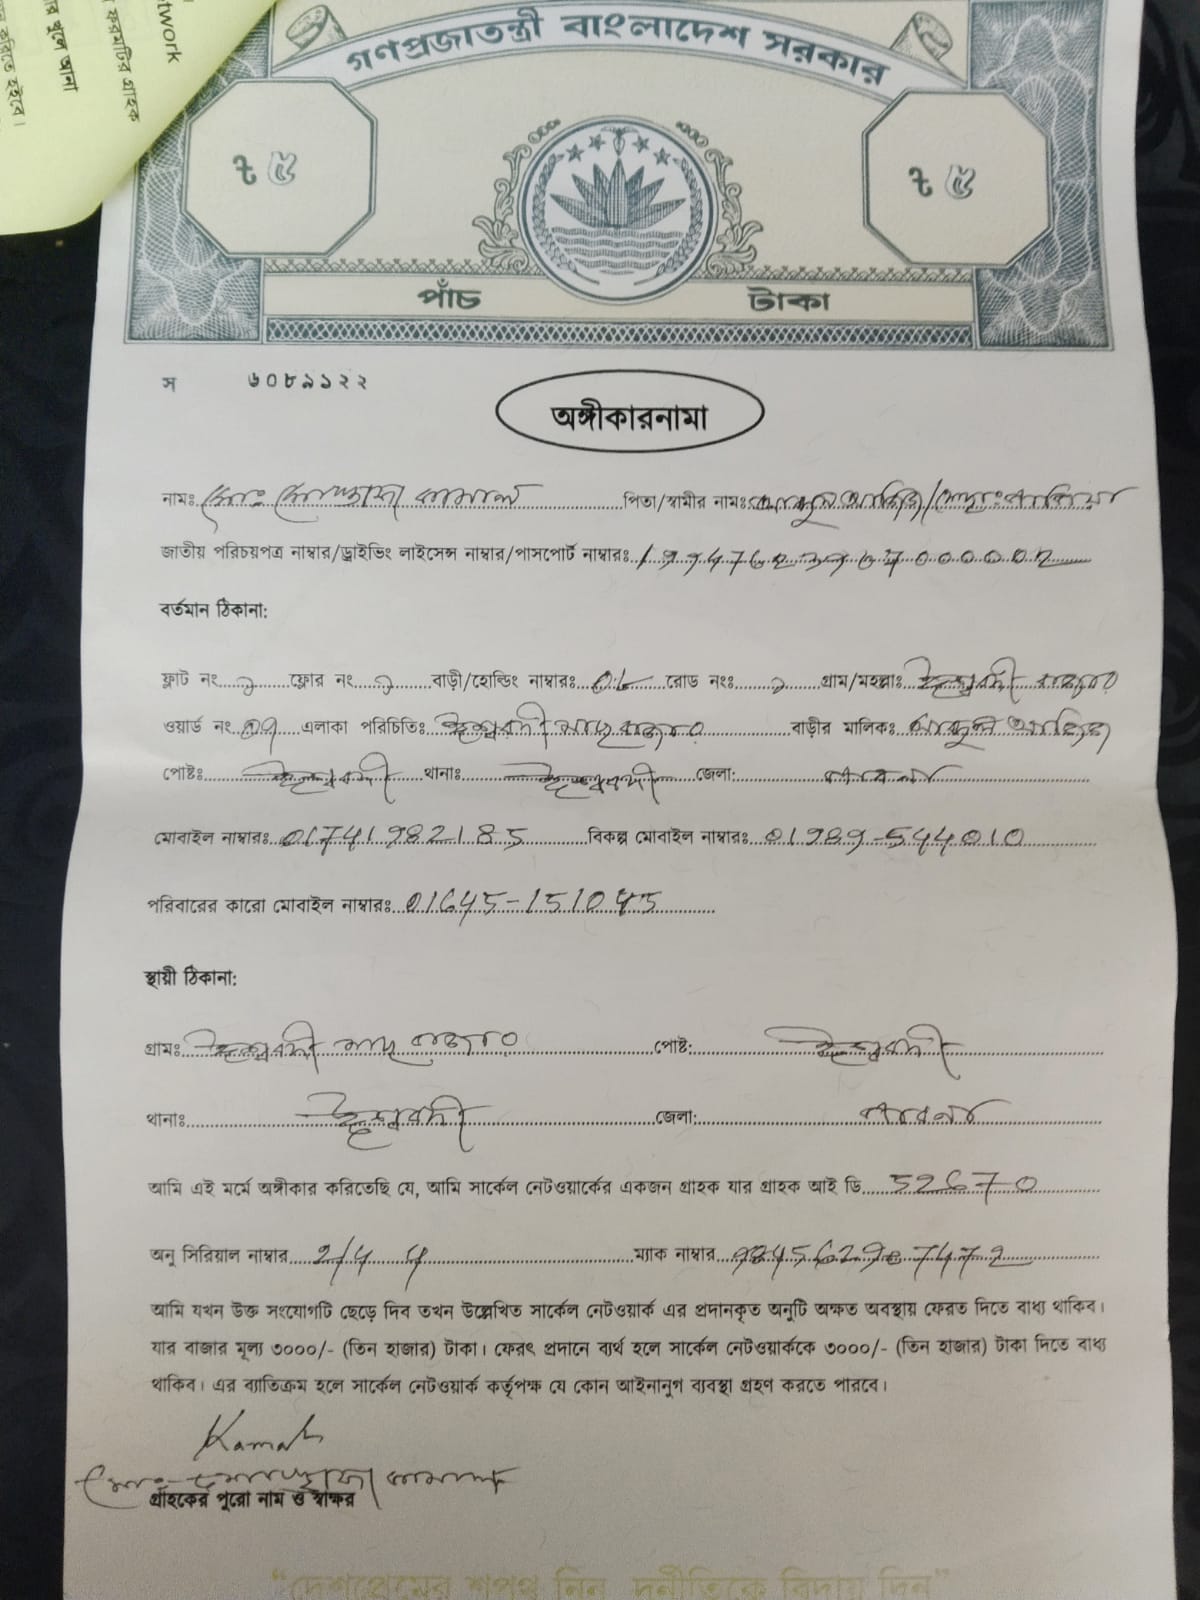 twork
করমটির গ্রাহক
র খুলে আনা
করিতে হইবে।
গণপ্রজাতন্ত্রী বাংলাদেশ সরকার
ট ৫ ট ৫
পাঁচ টাকা
স ৬০৮৯১২২
অঙ্গীকারনামা
নামঃ মোঃ মোস্তফা কামাল পিতা/স্বামীর নামঃ
জাতীয় পরিচয়পত্র নাম্বার/ড্রাইভিং লাইসেন্স নাম্বার/পাসপোর্ট নাম্বারঃ
বর্তমান ঠিকানা:
ফ্লাট নং ফ্লোর নং বাড়ী/হোল্ডিং নাম্বারঃ রোড নংঃ গ্রাম/মহল্লাঃ ঈশ্বরদী বাজার
ওয়ার্ড নং এলাকা পরিচিতিঃ ঈশ্বরদী মাছ বাজার বাড়ীর মালিকঃ
পোষ্টঃ ঈশ্বরদী থানাঃ ঈশ্বরদী জেলা: পাবনা
মোবাইল নাম্বারঃ 01741982185 বিকল্প মোবাইল নাম্বারঃ 01989-544010
পরিবারের কারো মোবাইল নাম্বারঃ 01645-151045
স্থায়ী ঠিকানা:
গ্রামঃ ঈশ্বরদী মাছ বাজার পোষ্ট: ঈশ্বরদী
থানাঃ ঈশ্বরদী জেলা: পাবনা
আমি এই মর্মে অঙ্গীকার করিতেছি যে, আমি সার্কেল নেটওয়ার্কের একজন গ্রাহক যার গ্রাহক আই ডি 52670
অনু সিরিয়াল নাম্বার ম্যাক নাম্বার
আমি যখন উক্ত সংযোগটি ছেড়ে দিব তখন উল্লেখিত সার্কেল নেটওয়ার্ক এর প্রদানকৃত অনুটি অক্ষত অবস্থায় ফেরত দিতে বাধ্য থাকিব।
যার বাজার মূল্য ৩০০০/- (তিন হাজার) টাকা। ফেরৎ প্রদানে ব্যর্থ হলে সার্কেল নেটওয়ার্ককে ৩০০০/- (তিন হাজার) টাকা দিতে বাধ্য
থাকিব। এর ব্যাতিক্রম হলে সার্কেল নেটওয়ার্ক কর্তৃপক্ষ যে কোন আইনানুগ ব্যবস্থা গ্রহণ করতে পারবে।
Kamal
মোঃ মোস্তফা কামাল
গ্রাহকের পুরো নাম ও স্বাক্ষর
“দেশপ্রেমের শপথ নিন, দুর্নীতিকে বিদায় দিন”